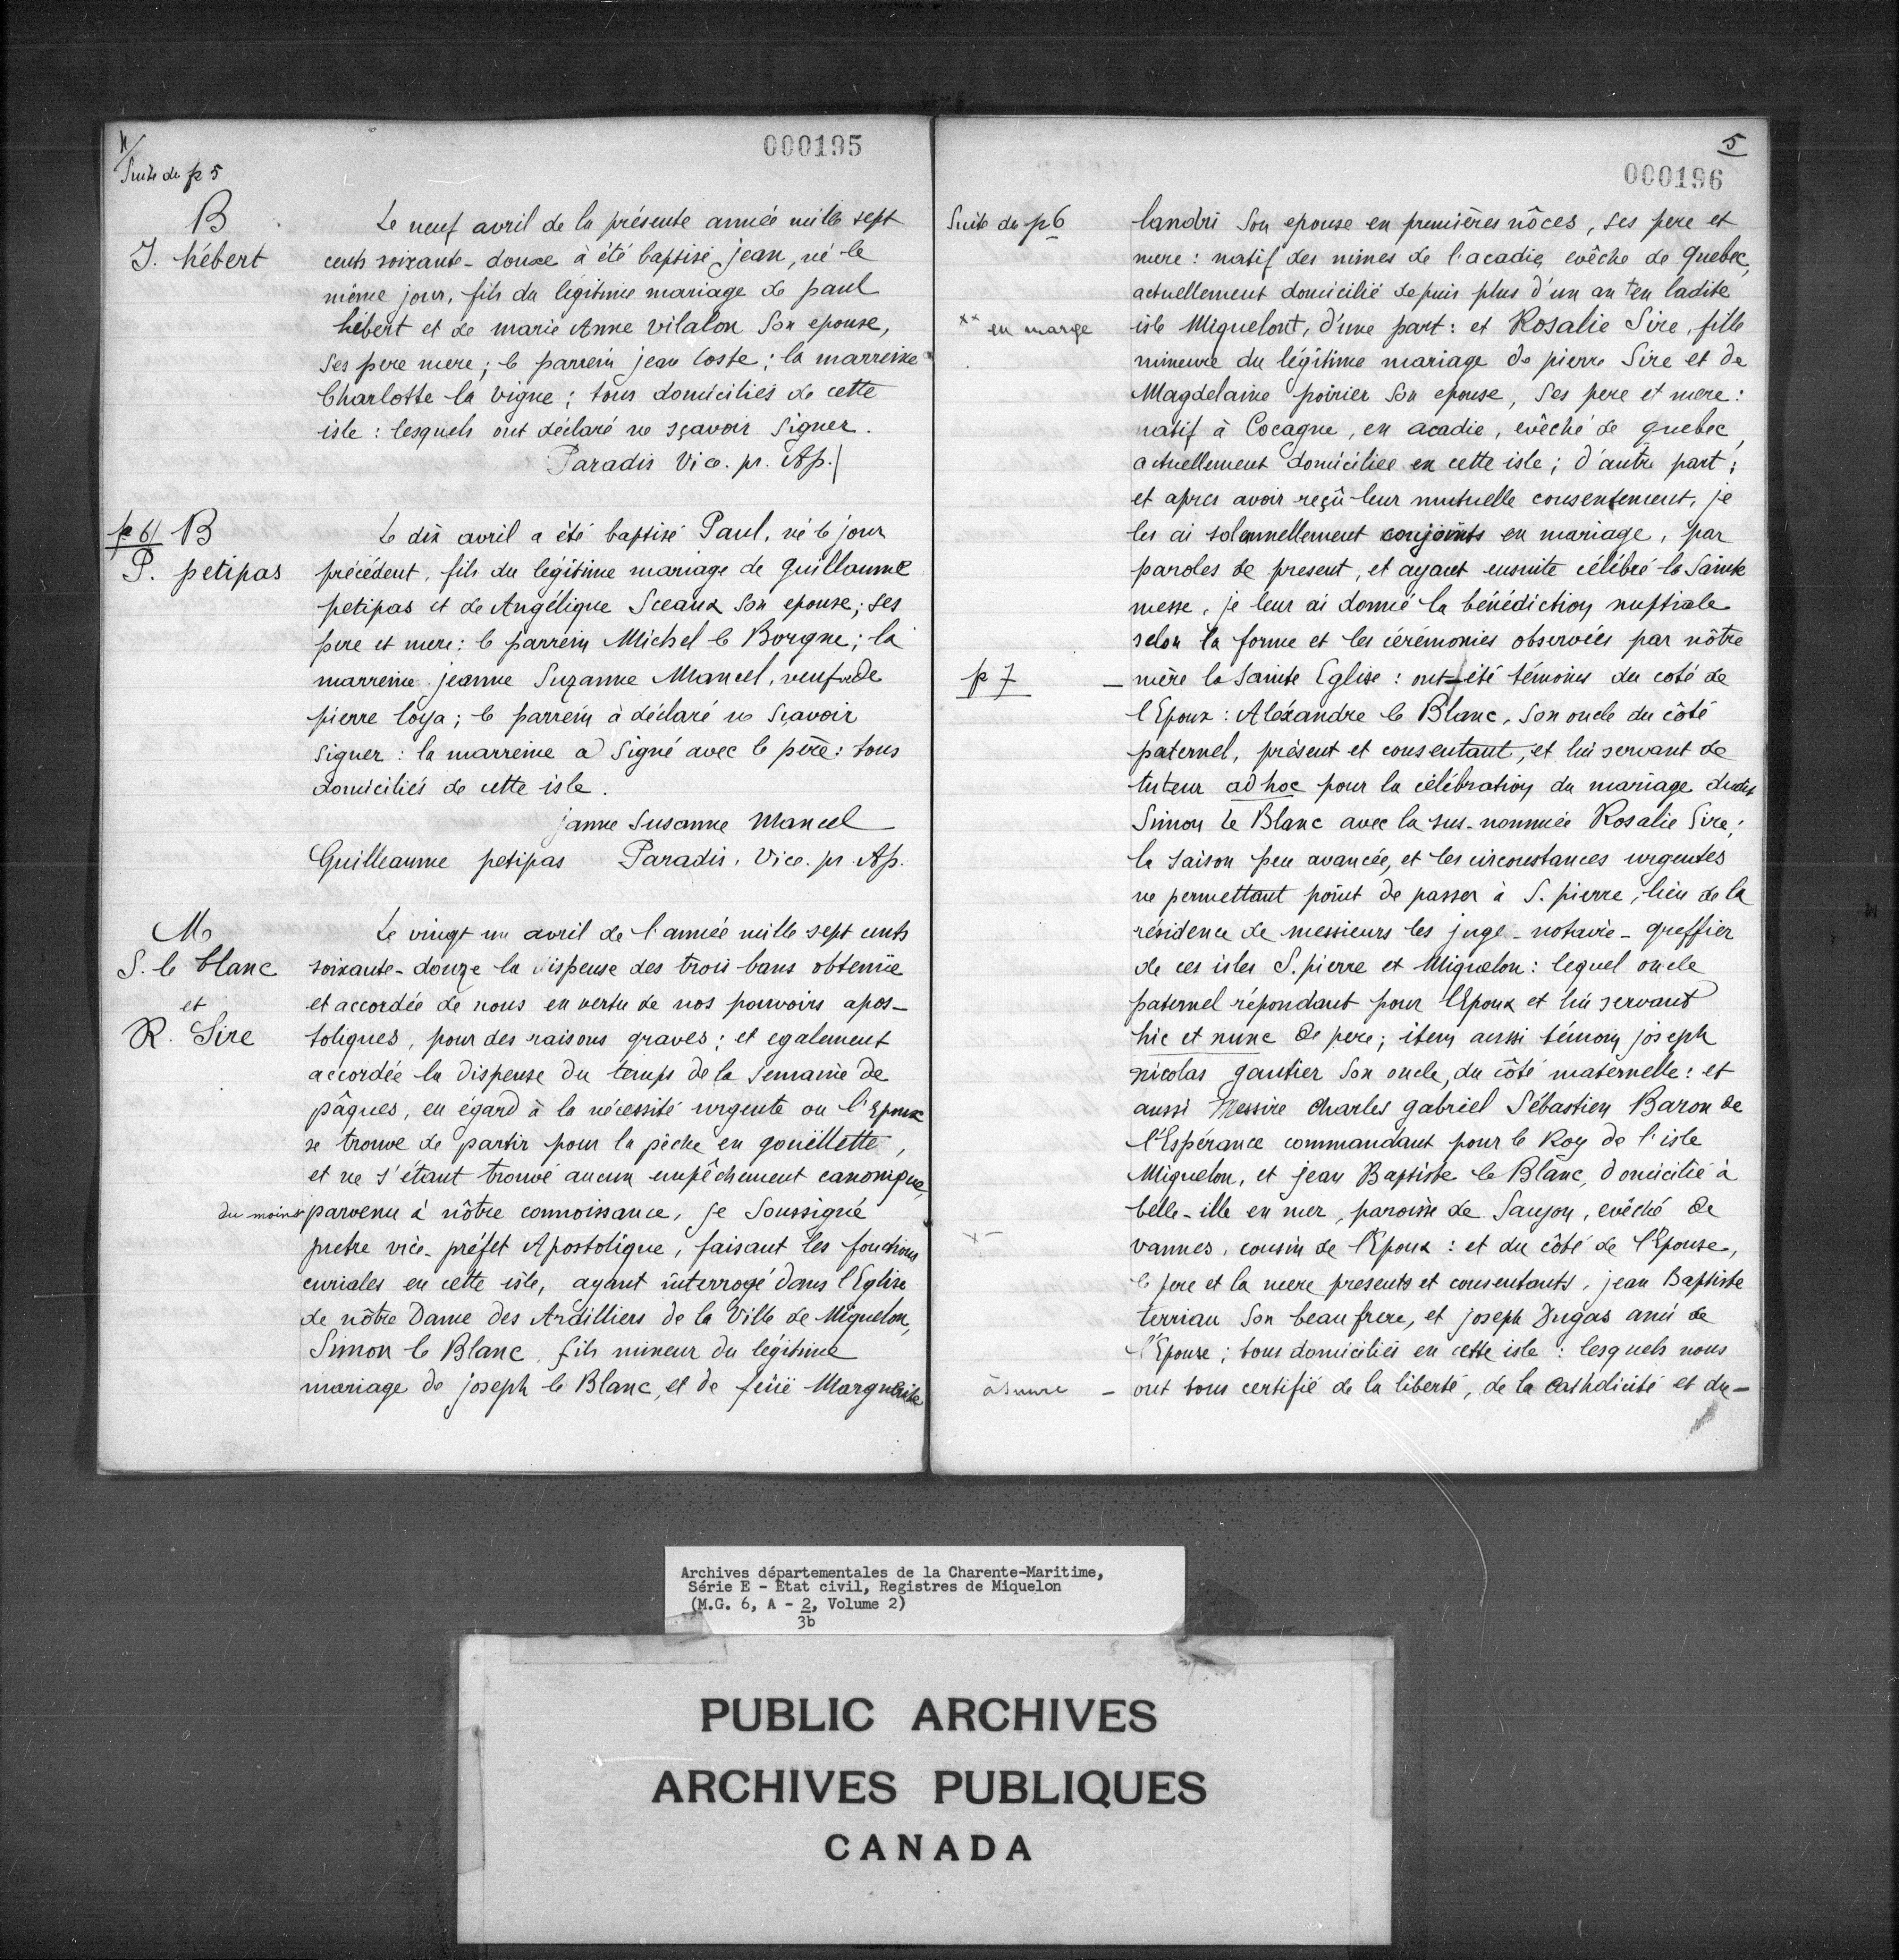 4/
000195
Suite du p 5
B
J. hébert
Le neuf avril de la présente année mille sept
cents soixante-douze à été baptisé jean, né le
même jour, fils du légitime mariage de paul
hébert et de marie Anne vilalon Son epouse,
Ses pere mere ; le parrein jean Coste ; la marreine
Charlotte la vigne ; tous domiciliés de cette
isle : lesquels ont déclaré ne sçavoir Signer.
Paradis Vice. pr. Ap./
p 6/ B
P. petipas
Le dix avril a été baptisé Paul, né le jour
précédent, fils du légitime mariage de Guillaume
petipas et de Angélique Sceaux Son epouse ; ses
pere et mere : le parrein Michel le Borgne ; la
marreine jeanne Suzanne Mancel, veufve de
pierre loya ; le parrein à déclaré ne Sçavoir
Signer : la marreine a Signé avec le père : tous
domiciliés de cette isle.
janne Susanne Mancel
Guilleaume petipas Paradis. Vice. pr. Ap.
M
S. le blanc
et
R. Sire
Le vingt un avril de l'année mille sept cents
soixante-douze la dispense des trois bans obtenüe
et accordée de nous en vertu de nos pouvoirs apos-
toliques, pour des raisons graves ; et egalement
accordée la Dispense Du temps de la Semaine de
pâques, eu égard à la nécessité urgente ou l'Epoux
se trouve de partir pour la pêche en gouëllette,
et ne s'étant trouvé aucun empêchement canonique,
du moins parvenu à nôtre connoissance, je Soussigné
pretre vice-préfet Apostolique, faisant les fonctions
curiales en cette isle, ayant interrogé dans l'Eglise
de nôtre Dame des Ardilliers de la Ville de Miquelon,
Simon le Blanc, fils mineur du légitime
mariage de joseph le Blanc, et de feüe Marguerite
5
000196
Suite du p 6
landri Son epouse en premières nôces, ses pere et
mere : natif des mines de l'acadie, evêche de Quebec,
actuellement domicilié depuis plus d'un an en ladite
xx en marge
isle Miquelont, d'une part : et Rosalie Sire, fille
mineure du légitime mariage de pierre Sire et de
Magdelaine poirier Son epouse, Ses pere et mere :
natif à Cocagne, en acadie, evêché de quebec,
actuellement domiciliée en cette isle ; d'autre part ;
et apres avoir reçû leur mutuelle consentement, je
les ai solennellement conjoints en mariage, par
paroles de present, et ayant ensuite célébré la Sainte
messe, je leur ai donné la bénédiction nuptiale
selon la forme et les cérémonies observées par nôtre
p 7
– mère la Sainte Eglise : ont été témoins du coté de
l'Epoux : Aléxandre le Blanc, Son oncle du côté
paternel, présent et consentant, et lui servant de
tuteur ad hoc pour la célébration du mariage dudit
Simon le Blanc avec la sus-nommée Rosalie Sire ;
la saison peu avancée, et les circonstances urgentes
ne permettant point de passer à S. pierre, lieu de la
résidence de messieurs les juge-notarie-greffier
de ces isles S. pierre et Miquelon : lequel oncle
paternel répondant pour l'Epoux et lui servant
hic et nunc De pere ; item aussi témoin joseph
nicolas gautier Son oncle, du côté maternelle : et
aussi Messire Charles gabriel Sébastien Baron de
l'Espérance commandant pour le Roy de l'isle
Miquelon, et jean Baptiste le Blanc, domicilié à
belle-ille en mer, paroisse de Saujon, evêché de
x –
vannes, cousin de l'Epoux : et du côté de l'Epouse,
le pere et la mere presents et consentants, jean Baptiste
terriau Son beau frere, et joseph Dugas ami de
l'Epouse ; tous domiciliés en cette isle : lesquels nous
à suivre – ont tous certifié de la liberté, de la Catholicité et du –
Archives départementales de la Charente-Maritime,
Série E - Etat civil, Registres de Miquelon
(M.G. 6, A - 2, Volume 2)
3b
PUBLIC ARCHIVES
ARCHIVES PUBLIQUES
CANADA